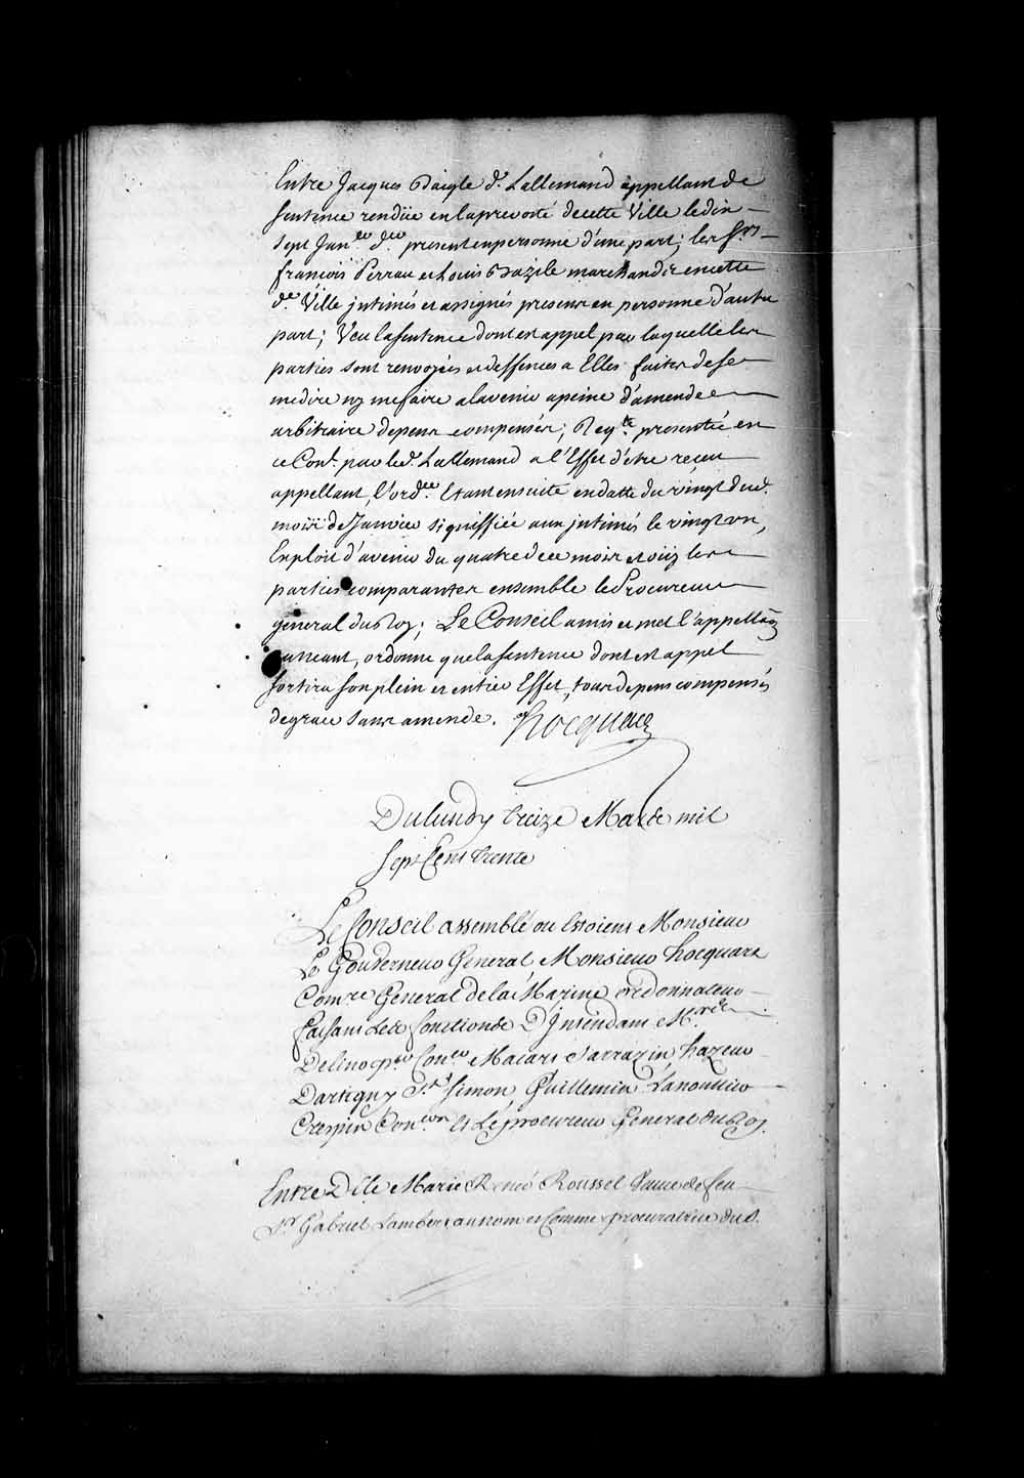 Entre Jacques Daigle d.t Lallemand appellant de
sentence rendüe en la prevosté de cette Ville le dix
sept Jan.er d.er present en personne d'une part; les S.rs
françois Perrau et Louis Bazile marchands en cette
d.e Ville jntimés et assignés presens en personne d'autre
part; Veu la sentence dont est appel par laquelle les
parties sont renvoyées et deffences a Elles faites de se
medire ny mefaire a l'avenir a peine d'amende
arbitraire depens compensés; Req.te presentée en
ce Con.l par led. Lallemand a l'Effet d'etre receu
appellant, l'ord.ce Etant ensuite en datte du vingt dud.
mois de Janvier signiffiée aux jntimés le vingt un,
Exploit d'avenir du quatre de ce mois et oüy les
parties comparantes ensemble le Procureur
general du Roy; Le Conseil a mis et met l'appellaõn
au neant, ordonne que la sentence dont est appel
sortira son plein et entier Effet, tous depens compensés
de grace sans amende. Hocquart
Du lundy treize Mars mil
sept Cent trente
Le Conseil assemblé ou Estoient Monsieur
Le Gouverneur General, Monsieur hocquart
Com.re General de la Marine ordonnateur
faisant les fonctions D'Jntendant M.rs de
Delino p.er Con.er Macart Sarrazin hazeur
Dartigny S.t Simon, Guillemin Lanoullier
Crespin Con.ers Et Le procureur General du Roy.
Entre D.lle Marie Renée Roussel Veuve de feu
S.r Gabriel Lambert au nom et Comme procuratrice du S.